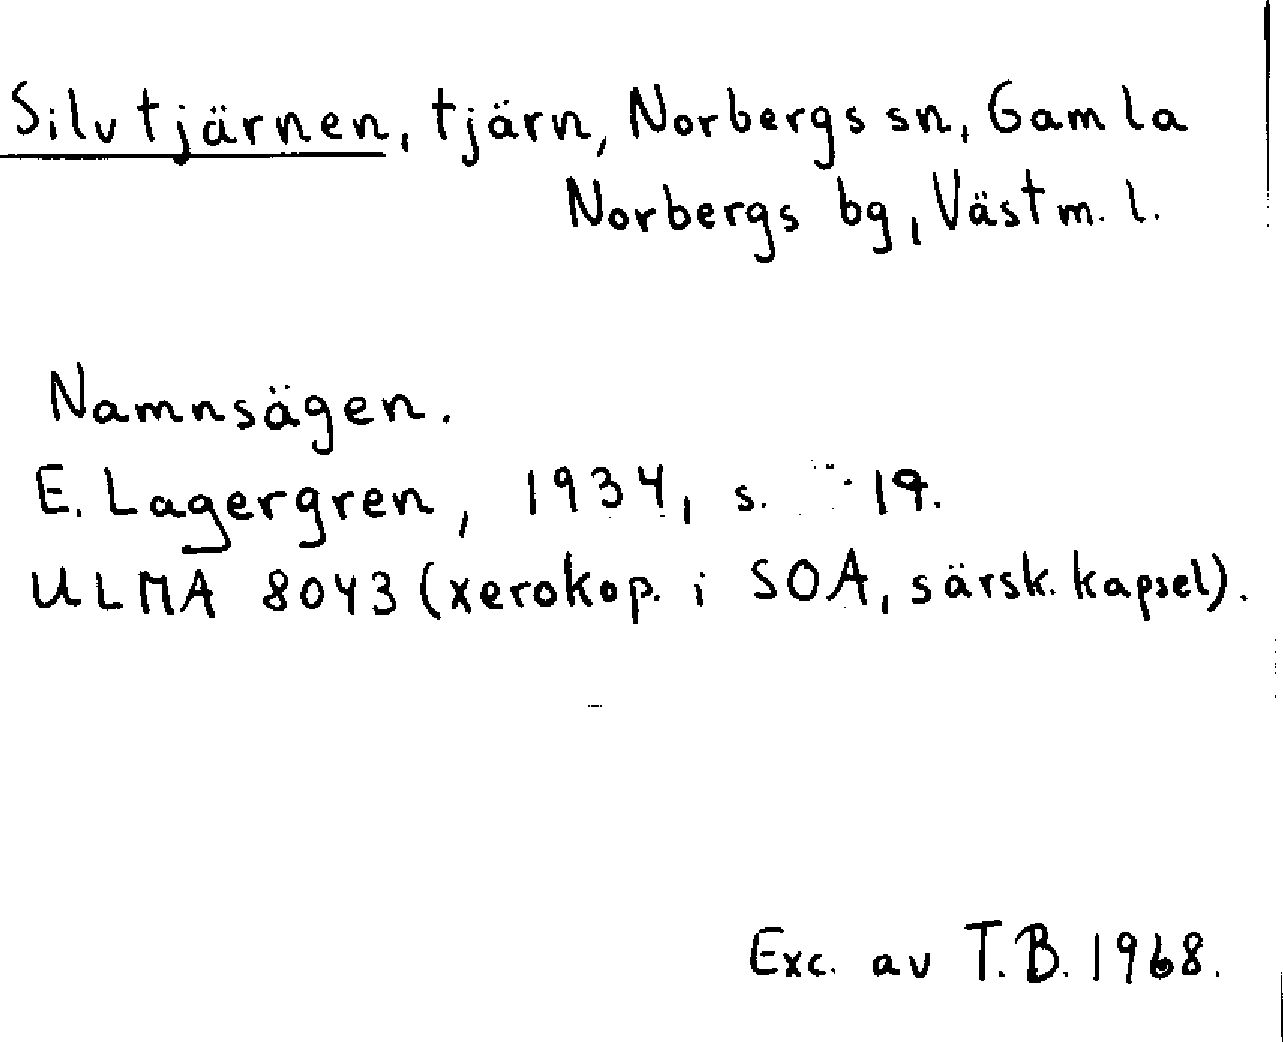 Silvtjärnen, tjärn, Norbergs sn, Gamla
Norbergs bg, Västm. l.
Namnsägen.
E. Lagergren, 1934, s. 19.
ULMA 8043 (xerokop. i SOA, särsk. kapsel).
Exc. av T.B. 1968.